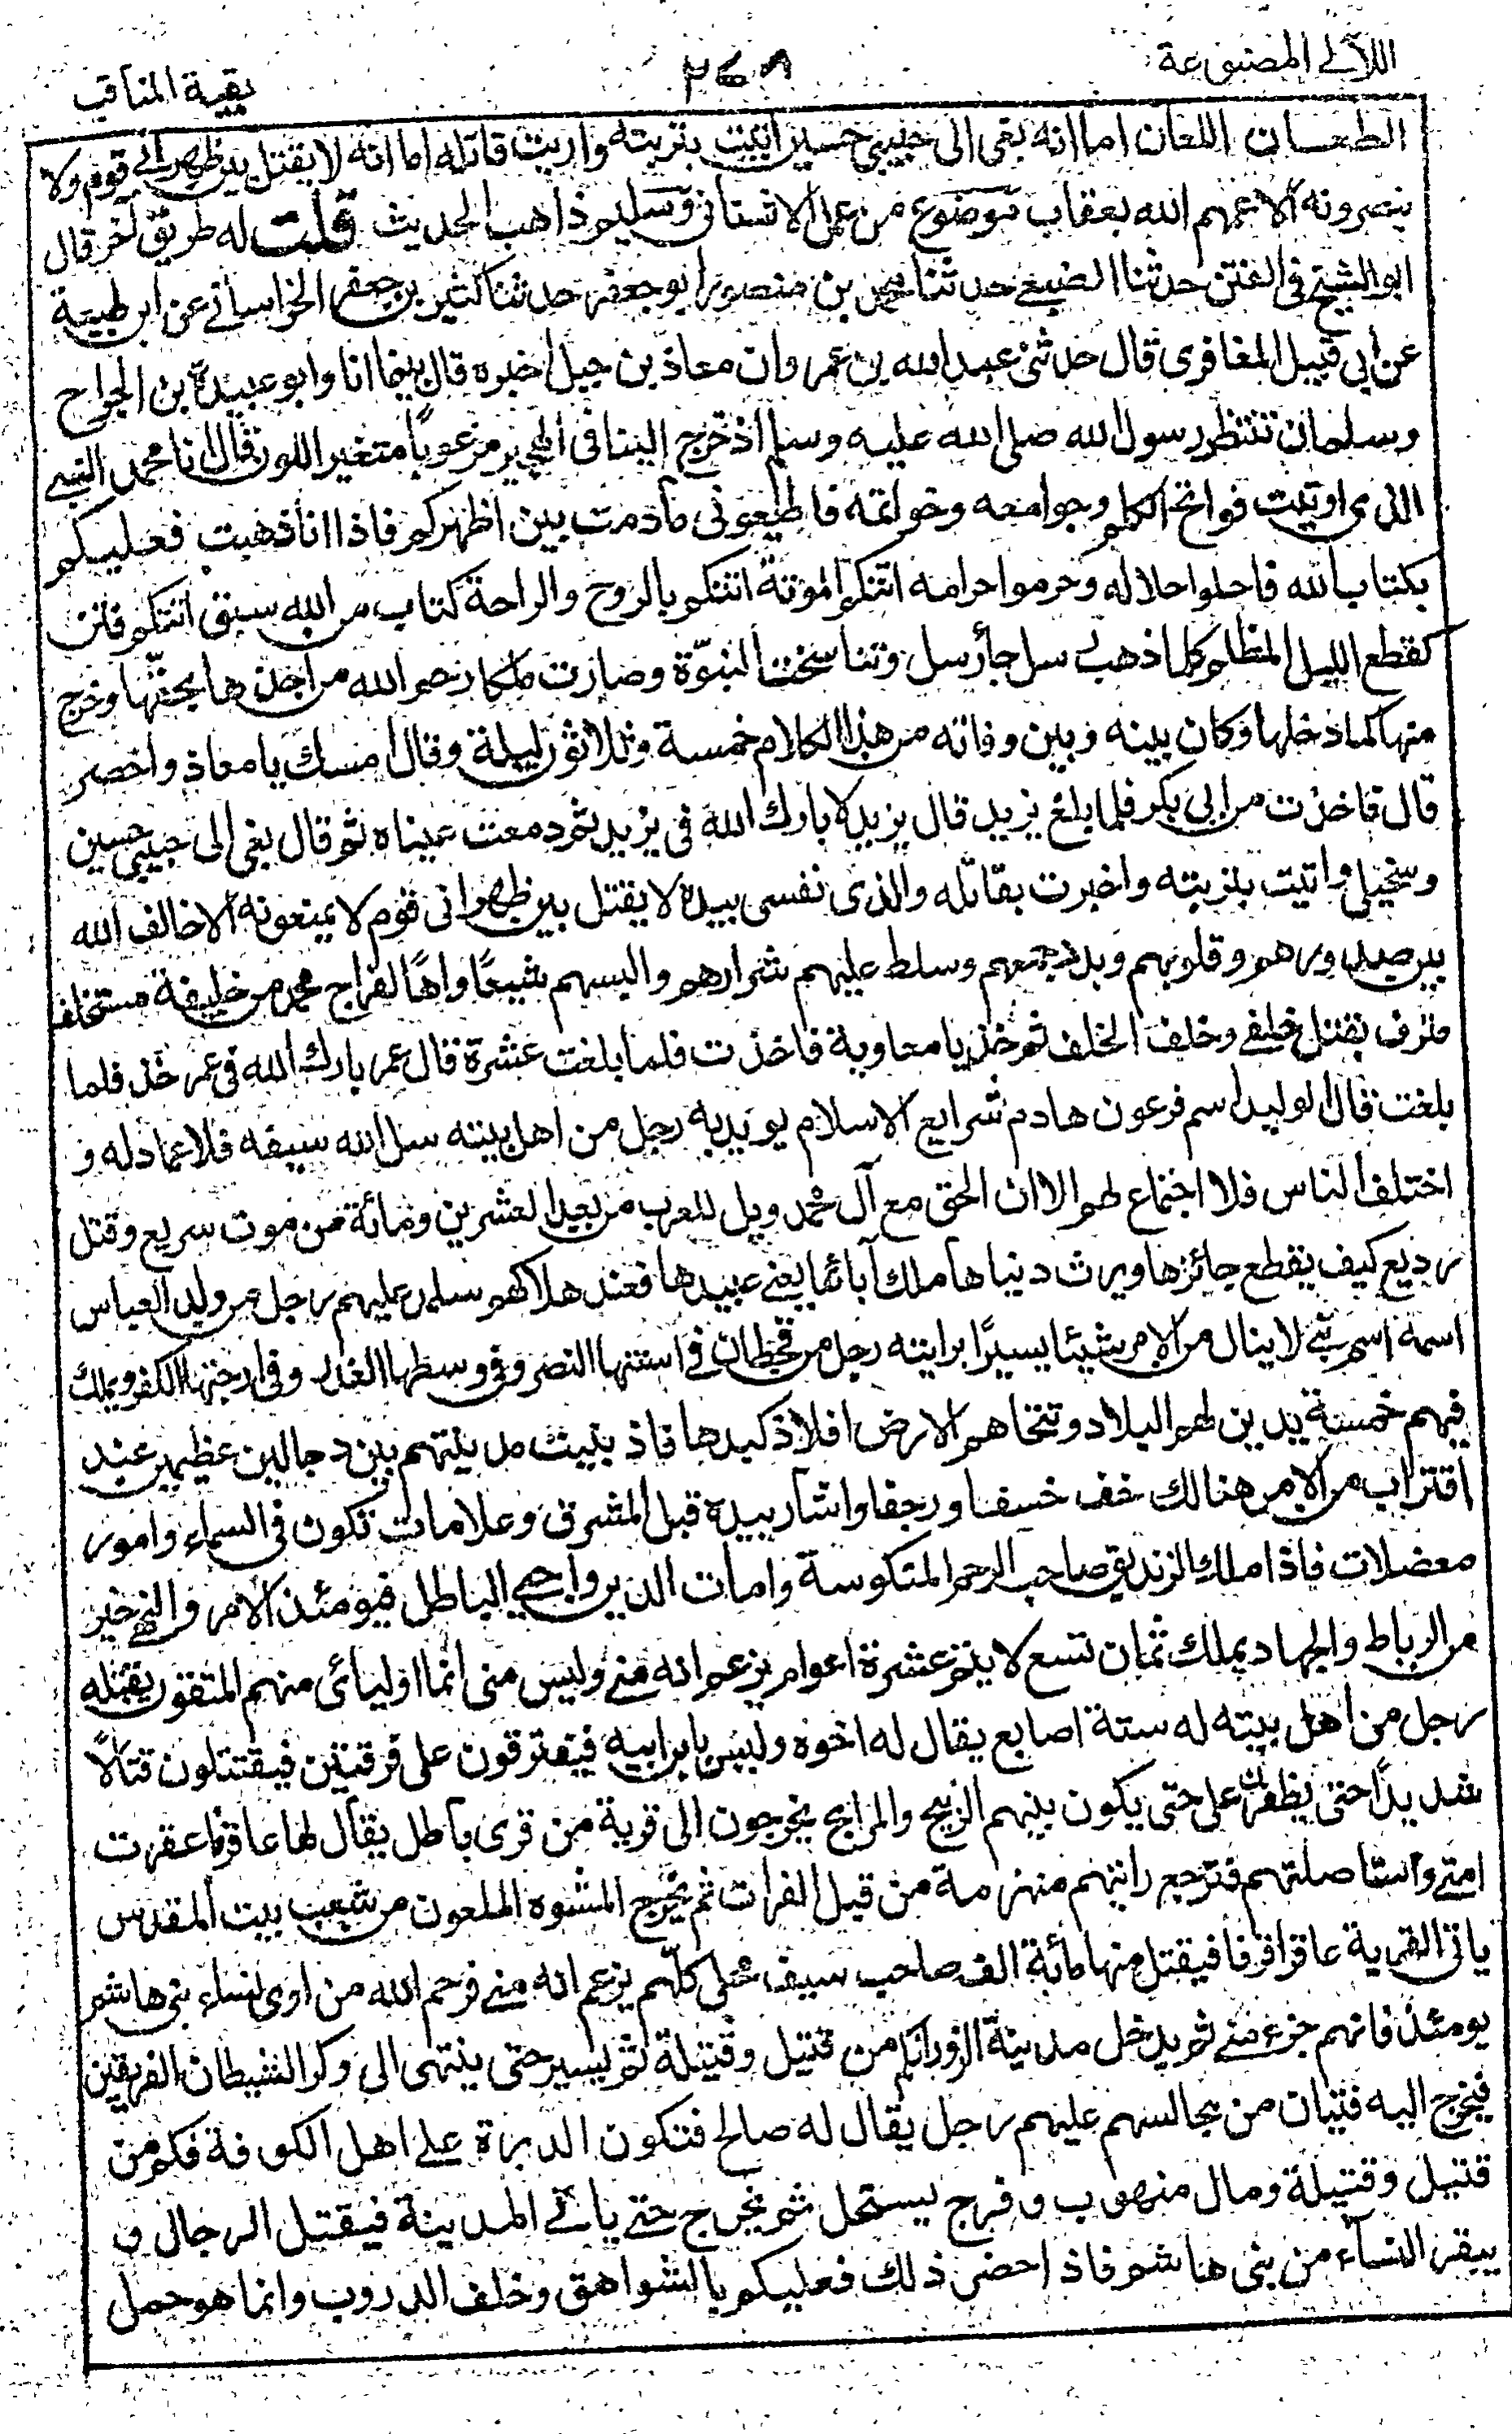 اللآلے المصنوعة
٢٤٨
بقية المناقب
الطعان اللعان اما انه بغى الى حبيبي حسين اتيت بتربته واريت قاتله اما انه لا يقتل بين ظهرانے قوم ولا
ينصرونه الا عمهم الله بعقاب موضوع من عمل الاشناني وسليم ذاهب الحديث قلت له طريق آخر قال
ابو الشيخ فى الفتن حدثنا الضبعے حدثنا بن منصور ابو جعفر حدثنا كثير بن جعفر الخراسانے عن ابن لهيعة
عن ابى قبيل المغافرى قال حدثنى عبد الله بن عمر وان معاذ بن جبل اخبره قال بينما انا وابو عبيدة بن الجراح
وسلمان ننتظر رسول الله صلى الله عليه وسلم اذ خرج الينا فى الهجير مرعوبًا متغير اللون فقال انا محمد النبے
الذى اوتيت فواتح الكلم وجوامعه وخواتمه فاطيعونى مادمت بين اظهركم فاذا انا ذهبت فعليكم
بكتاب الله فاحلوا حلاله وحرموا حرامه اتتكم الموتة اتتكم بالروح والراحة كتاب من الله سبق اتتكم فتن
كقطع الليل المظلم كلما ذهب رسل جاء رسل وتناسخت النبوّة وصارت ملكا رحم الله من اخذها بحقّها وخرج
منها كما دخلها وكان بينه وبين وفاته من هذا الكلام خمسة وثلاثون ليلة وقال امسك يا معاذ واحصر
قال فاخذت من ابى بكر فلما بلغ يزيد قال يزيد لا بارك الله فى يزيد ثم دمعت عيناه ثم قال بغى الى حبيبى حسين
وسخيلى واتيت بتربته واخبرت بقاتله والذى نفسى بيده لا يقتل بين ظهرانى قوم لا يمنعونه الا خالف الله
بين صدورهم وقلوبهم وسلط عليهم شرارهم والبسهم شيعًا واهًا لفراج محمد من خليفة مستخلف
مترف يقتل خلفے وخلف الخلف ثم خذ يا معاوية فاخذت فلما بلغت عشرة قال عمر بارك الله فى عمر خذ فلما
بلغت قال الوليد اسم فرعون هادم شرايع الاسلام يويد به رجل من اهل بيته سل الله سيفه فلا عمادله و
اختلف الناس فلا اجتماع لهم الا ان الحق مع آل محمد ويل للعرب من بعد العشرين ومائة من موت سريع وقتل
رديع كيف يقطع جائزها ويرث دنياها ملك آبائها يعنى عبيدها فعند هلاكهم سلم عليهم رجل من ولد العباس
اسمه اسم نبے لا ينال من الامر شيئا يسيرًا برايته رجل من قحطان فے اسنتها النصر وفى وسطها الغدر وفى ازجتها الكفر ويملك
فيهم خمسة يدين لهم البلاد وتتخاهم الارض افلاذ كبدها فاذ بنيت مدينتهم بين دجالين عظيمين عند
اقتراب من الامر هنالك خف خسفا ورجفا واشار بيده قبل المشرق وعلامات تكون فى السماء وامور
معضلات فاذا ملك الزنديق صاحب الرحم المنكوسة وامات الدين واحيے الباطل فيومئذ الامر والنهے خير
من الرباط والجهاد يملك ثمان تسع لا يتم عشرة اعوام يزعم انه منے وليس منى انما اوليائى منهم المتقون يقتله
رجل من اهل بيته له ستة اصابع يقال له اخوه وليس بابن ابيه فيفترقون على فرقتين فيقتتلون قتالاً
شديدًا حتى يظفر على حتى يكون بينهم الزبيج والمرابح يخرجون الى قرية من قرى باطل يقال لها عاقرفا عقرت
امتى واستاصلتهم فترجع رايتهم منهزمة من قبل الفرات ثم يخرج المشوه الملعون من شعب بيت المقدس
ياتى القرية عاقراقرفا فيقتل منها مائة الف صاحب سيف محلى كلّهم يزعم انه منے فرحم الله من اوى لنساء بنى هاشم
يومئذ فانهم جزء منے ثم يدخل مدينة الزوراء كم من قتيل وقتيلة ثم يسير حتى ينتهى الى وكر الشيطان الفريقين
فيخرج اليه فتيان من مجالسهم عليهم رجل يقال له صالح فتكون الدبرة علے اهل الكوفة فكم من
قتيل وقتيلة ومال منهوب وفرج يستحل ثم يخرج حتے ياتے المدينة فيقتل الرجال و
يبقر النساء من بنى هاشم فاذ احضر ذلك فعليكم بالشواهق وخلف الدروب وانما هو حمل